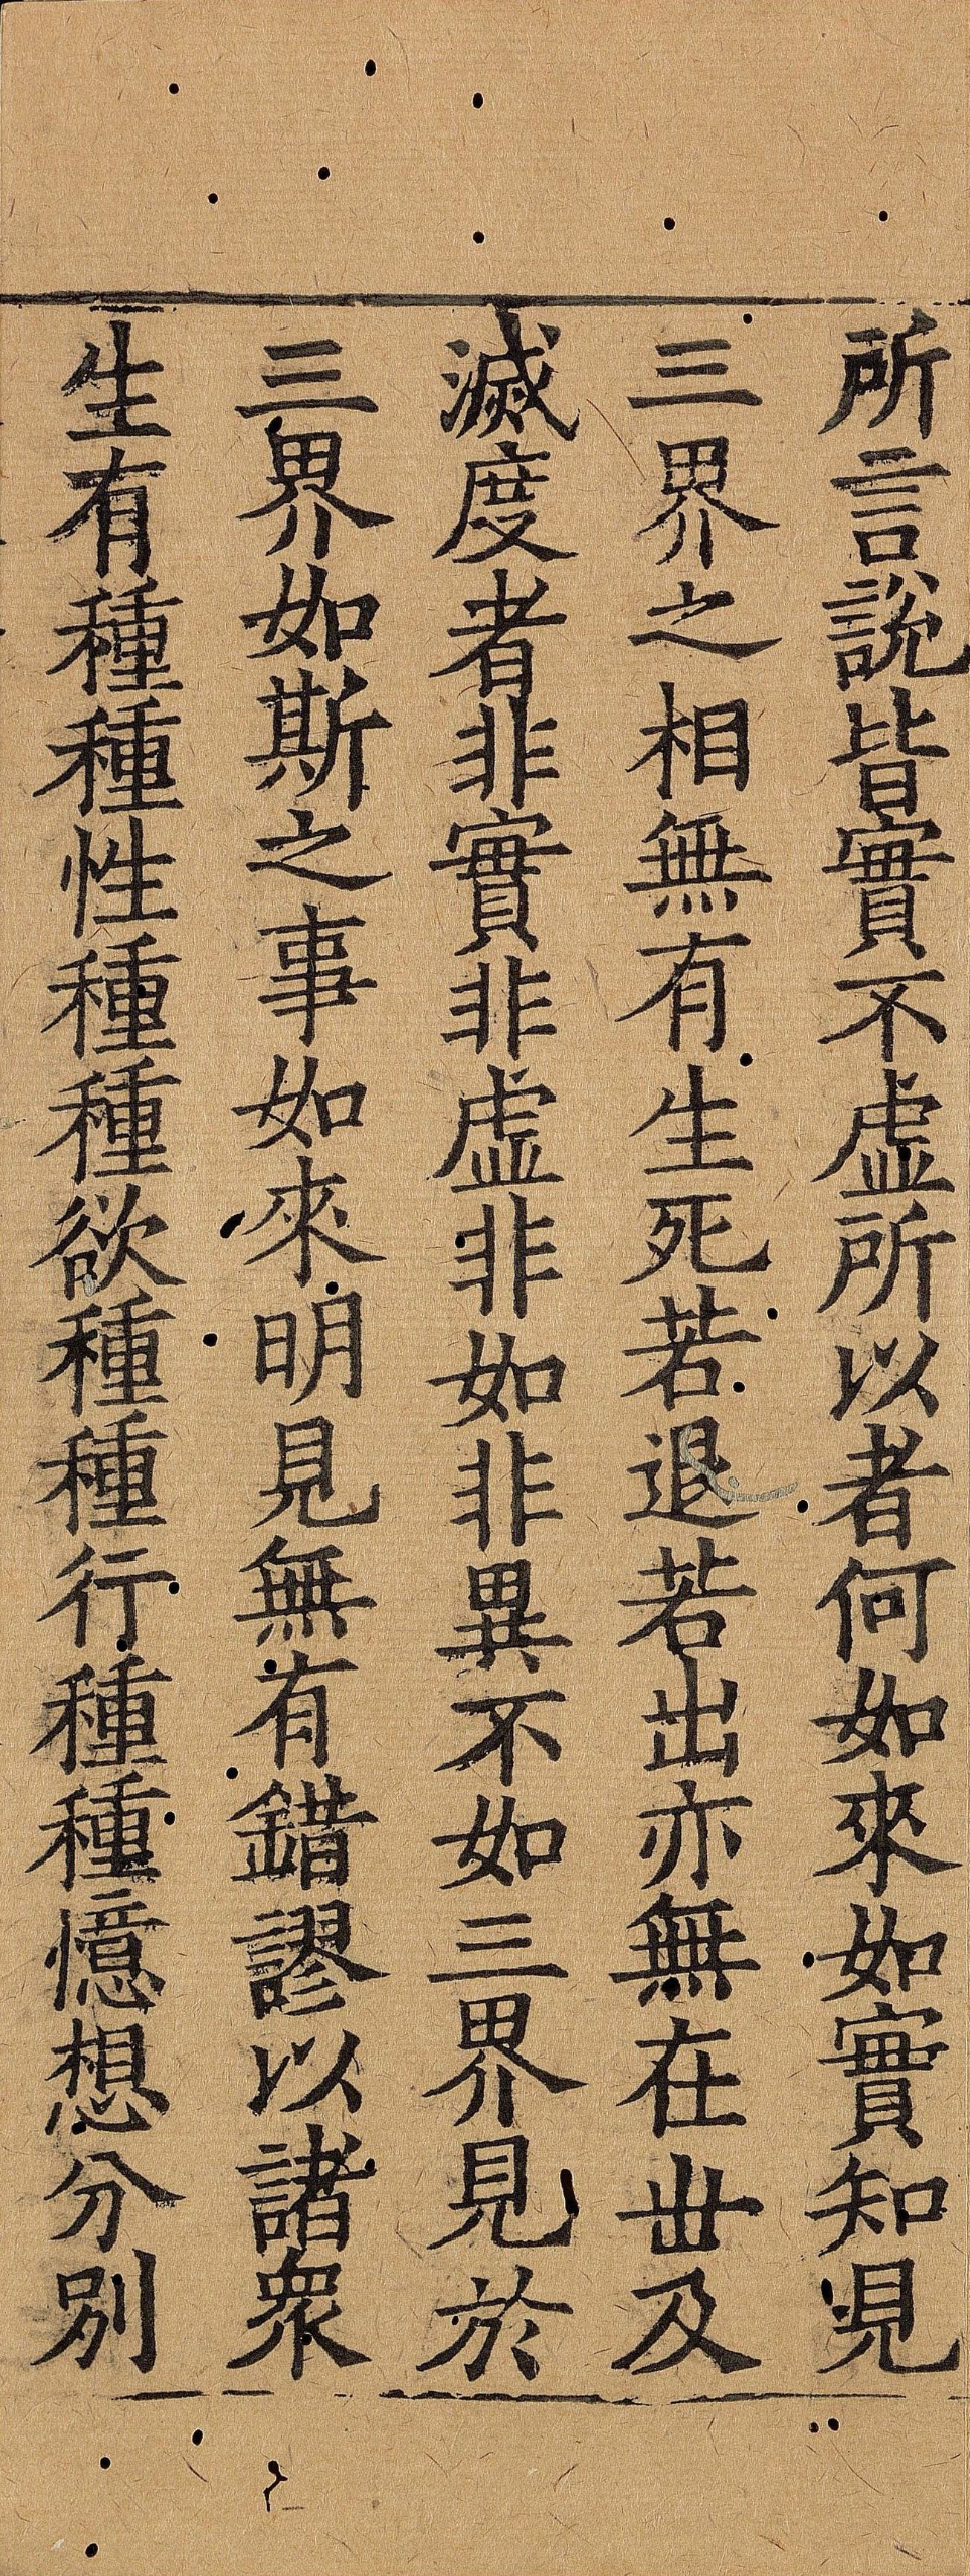 所言說皆實不虛所以者何如來如實知見
三界之相無有生死若退若出亦無在世及
滅度者非實非虛非如非異不如三界見於
三界如斯之事如來明見無有錯謬以諸衆
生有種種性種種欲種種行種種憶想分別